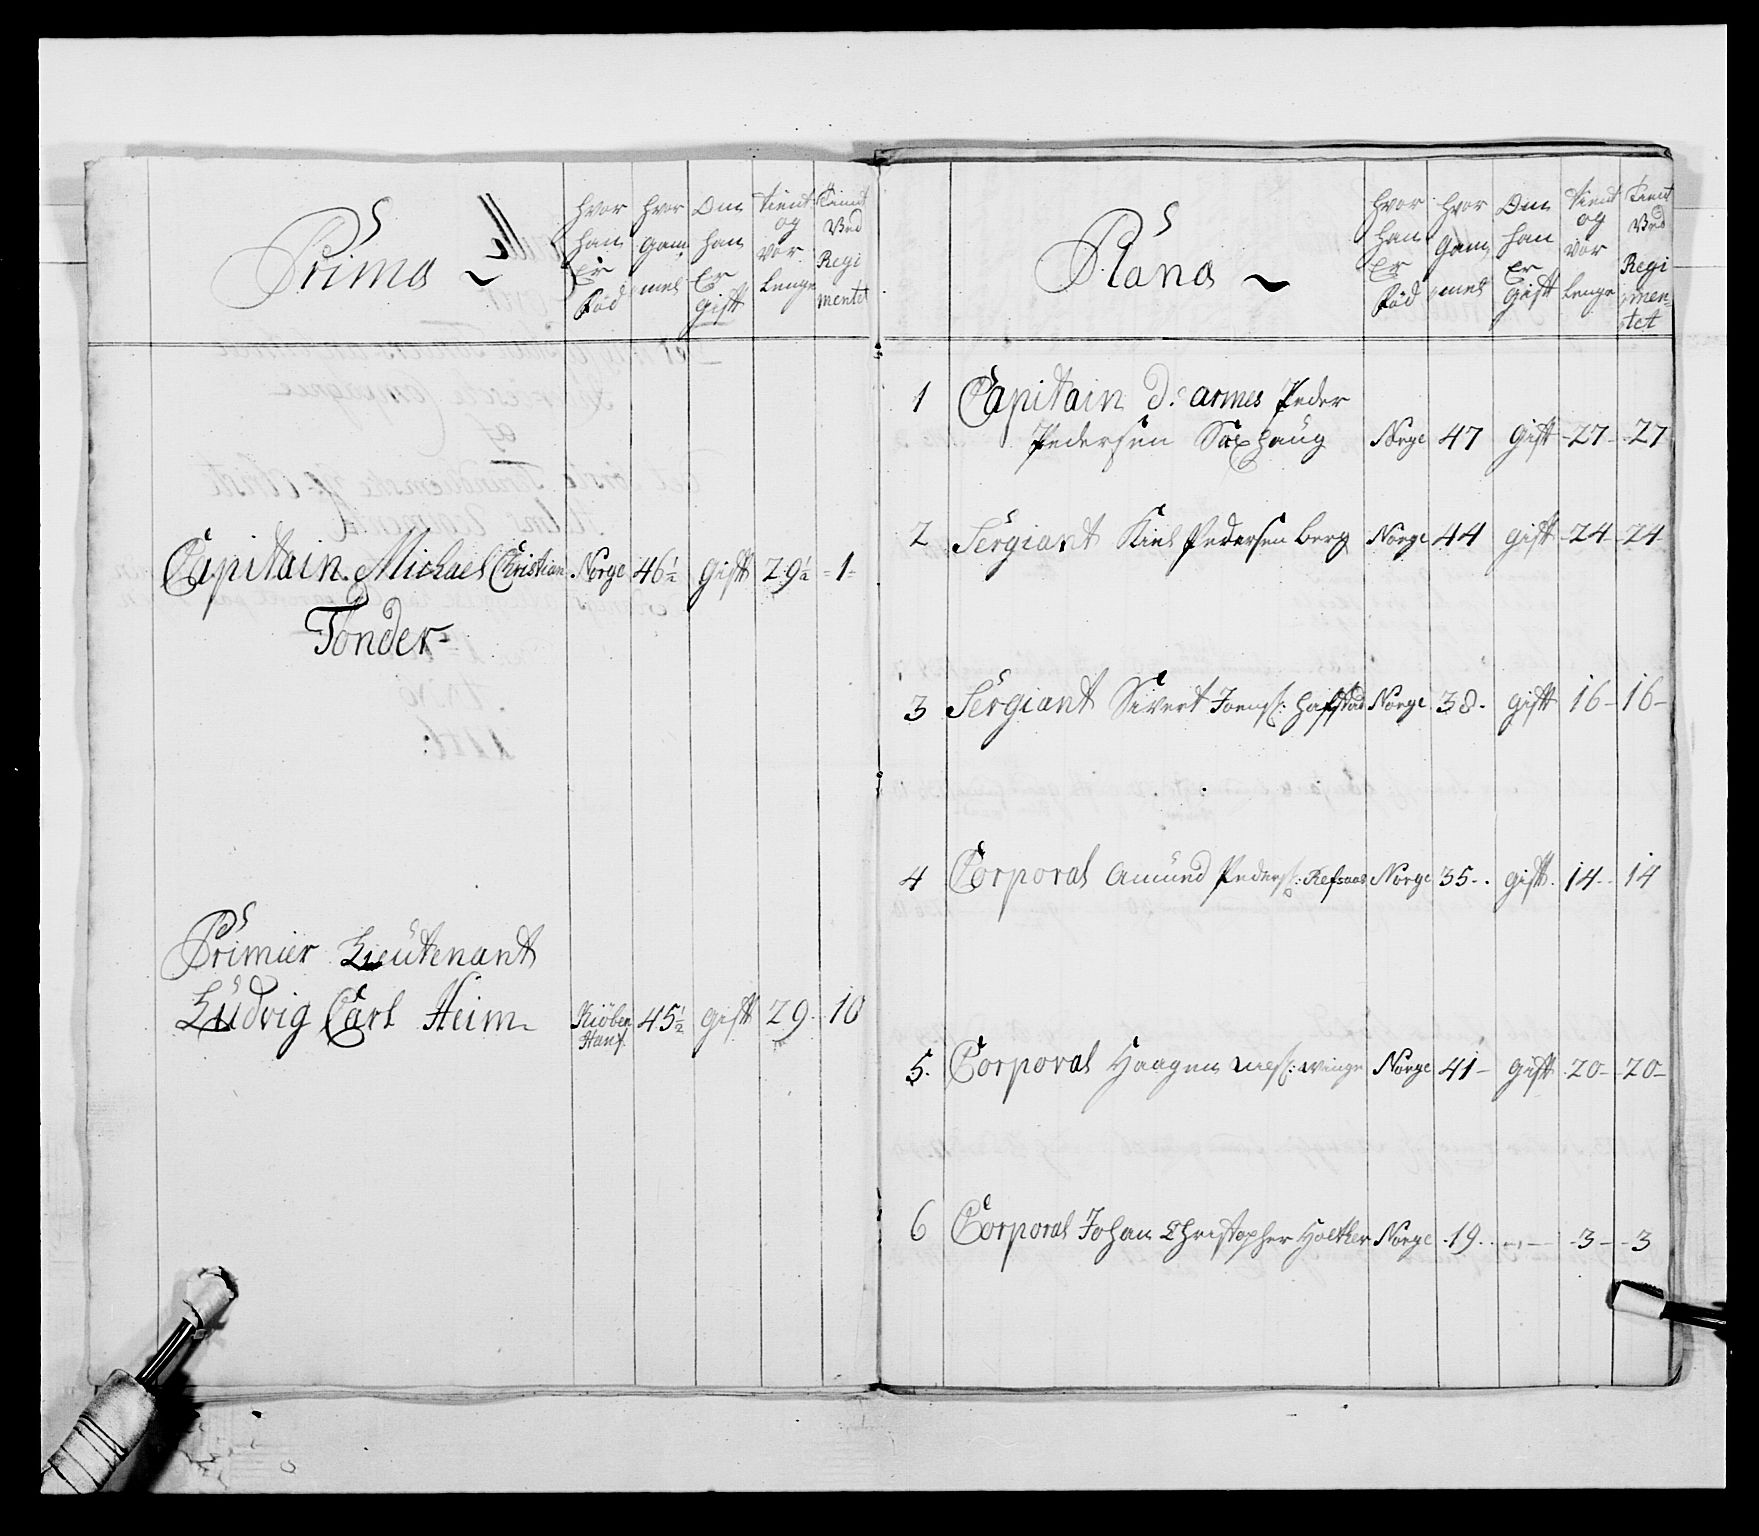 Prima
hvor han Er Fød
hvor gam mel
Om han Er gift
tient og vor lenge
tient Ved Regi mentet
Capitain Michael Christian Norge 46½ gift 29½ 1
Tonder
Primier Lieutenant
Ludvig Carl Heim Kiøben Hauf. 45½ gift 29 10
Plana
hvor han Er Fød
hvor gam mel
Om han Er gift
tient og vor lenge
tient Ved Regi men tet
1 Capitain d: armes Peder
Pedersen Saxhaug Norge 47 gift 27 27
2 Sergiant Kiel Pedersen Berg Norge 44 gift 24 24
3 Sergiant Sivert Joens: Hafstad Norge 38 gift 16 16
4 Corporal Amund Peders: Refsaas Norge 35 gift 14 14
5 Corporal Haagen Winge Norge 41 gift 20 20
6 Corporal Johan Christopher Holtker Norge 19 3 3